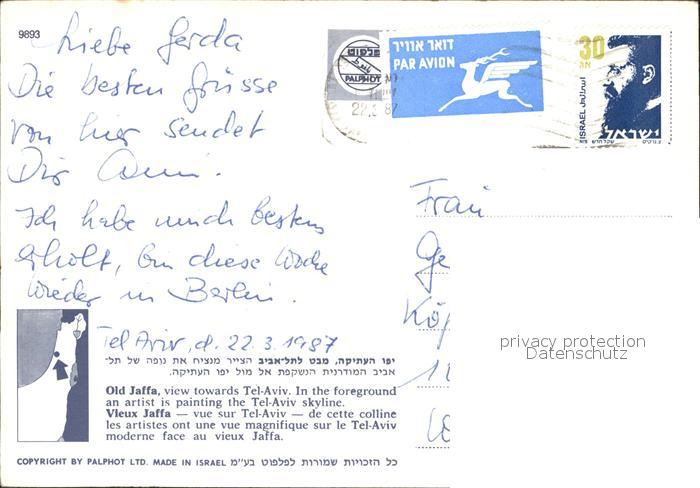 9893
Liebe Gerda
Die besten Grüsse
von hier sendet
Dir
Ich habe mich bestens
erholt, bin diese Woche
wieder in Berlin.
Tel Aviv, d. 22.3.1987
פלפוט
PALPHOT
דואר אוויר
PAR AVION
22.3 87
30
ISRAEL اسرائيل
ישראל
Frau
Ge
Köp
privacy protection
Datenschutz
יפו העתיקה, מבט לתל־אביב הצייר מנציח את נופה של תל־
אביב המודרנית הנשקפת אל מול יפו העתיקה.
Old Jaffa, view towards Tel-Aviv. In the foreground
an artist is painting the Tel-Aviv skyline.
Vieux Jaffa — vue sur Tel-Aviv — de cette colline
les artistes ont une vue magnifique sur le Tel-Aviv
moderne face au vieux Jaffa.
COPYRIGHT BY PALPHOT LTD. MADE IN ISRAEL כל הזכויות שמורות לפלפוט בע״מ